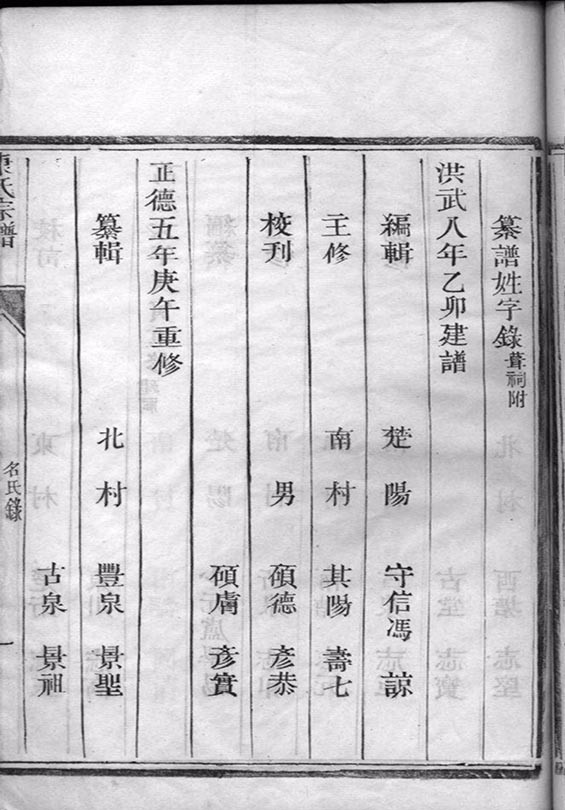 纂譜姓字錄葺祠附
洪武八年乙卯建譜
編輯 楚陽 守信馮諒
主修 南村 其陽壽七
校刊 男 碩德彥恭
碩膚彥實
正德五年庚午重修
纂輯 北村 豐泉景聖
古泉景祖
康氏宗譜 名氏錄 一